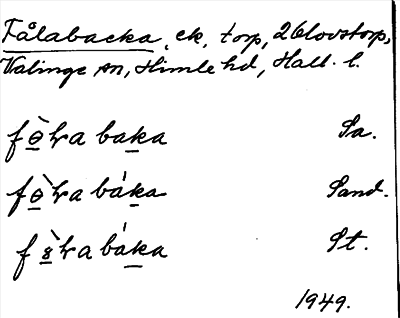 Fålabacka, ek, torp, 2 Olovstorp,
Valinge sn, Himle hd, Hall. l.
fɵ̀ƚa baka Sa.
fɵ̀ƚa báka Sand.
f8̀ƚa báka St.
1949.